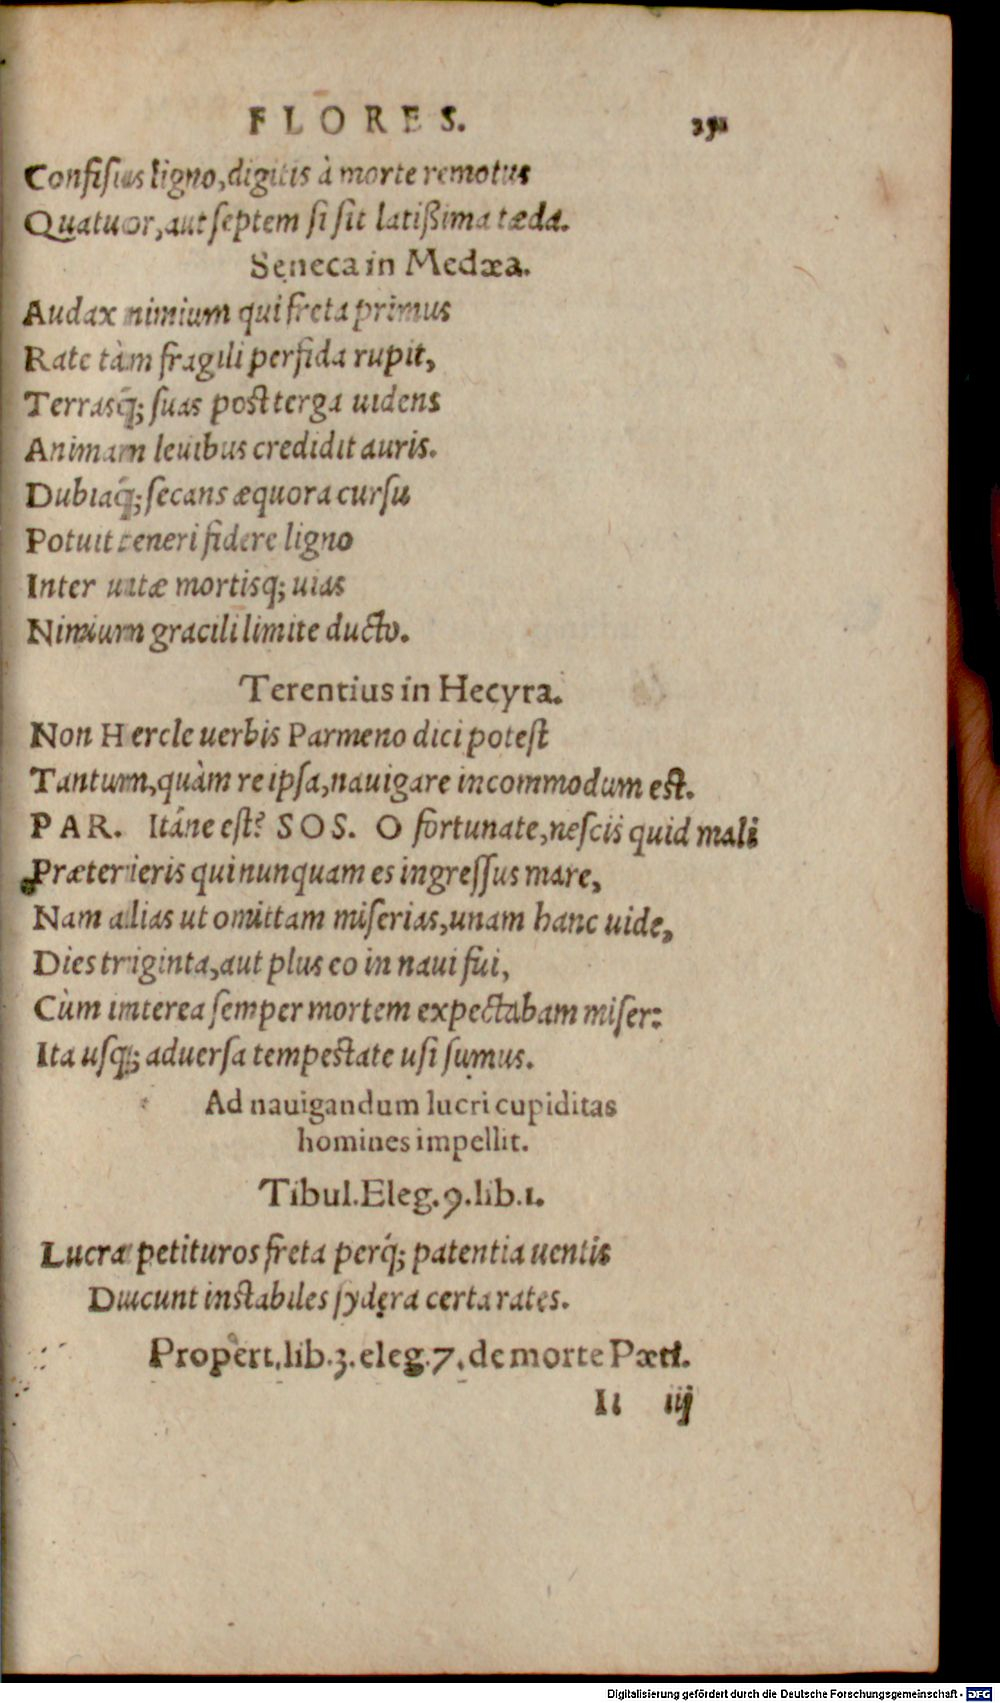 FLORES. 251
Confisus ligno, digitis à morte remotus
Quatuor, aut septem si sit latißima tæda.
Seneca in Medæa.
Audax nimium qui freta primus
Rate tàm fragili perfida rupit,
Terrasq́; suas post terga uidens
Animam leuibus credidit auris.
Dubiaq́; secans æquora cursu
Potuit teneri fidere ligno
Inter uitæ mortisq; uias
Nimium gracili limite ducto.
Terentius in Hecyra.
Non Hercle uerbis Parmeno dici potest
Tantum, quàm re ipsa, nauigare incommodum est.
PAR. Itáne est? SOS. O fortunate, nescis quid mali
Præterieris qui nunquam es ingressus mare,
Nam alias ut omittam miserias, unam hanc uide,
Dies triginta, aut plus eo in naui fui,
Cùm interea semper mortem expectabam miser:
Ita usq; aduersa tempestate usi sumus.
Ad nauigandum lucri cupiditas
homines impellit.
Tibul. Eleg. 9. lib. 1.
Lucra petituros freta perq́; patentia uentis
Ducunt instabiles sydera certa rates.
Propert. lib. 3. eleg. 7. de morte Pæti.
Ii iij
Digitalisierung gefördert durch die Deutsche Forschungsgemeinschaft - DFG